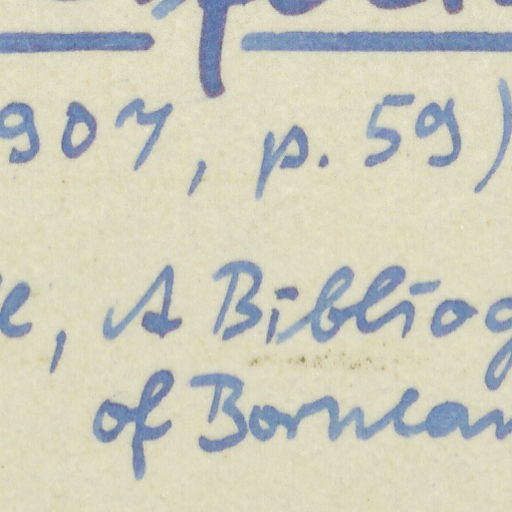 907, p. 59)
, A Bibliog
of Bornean